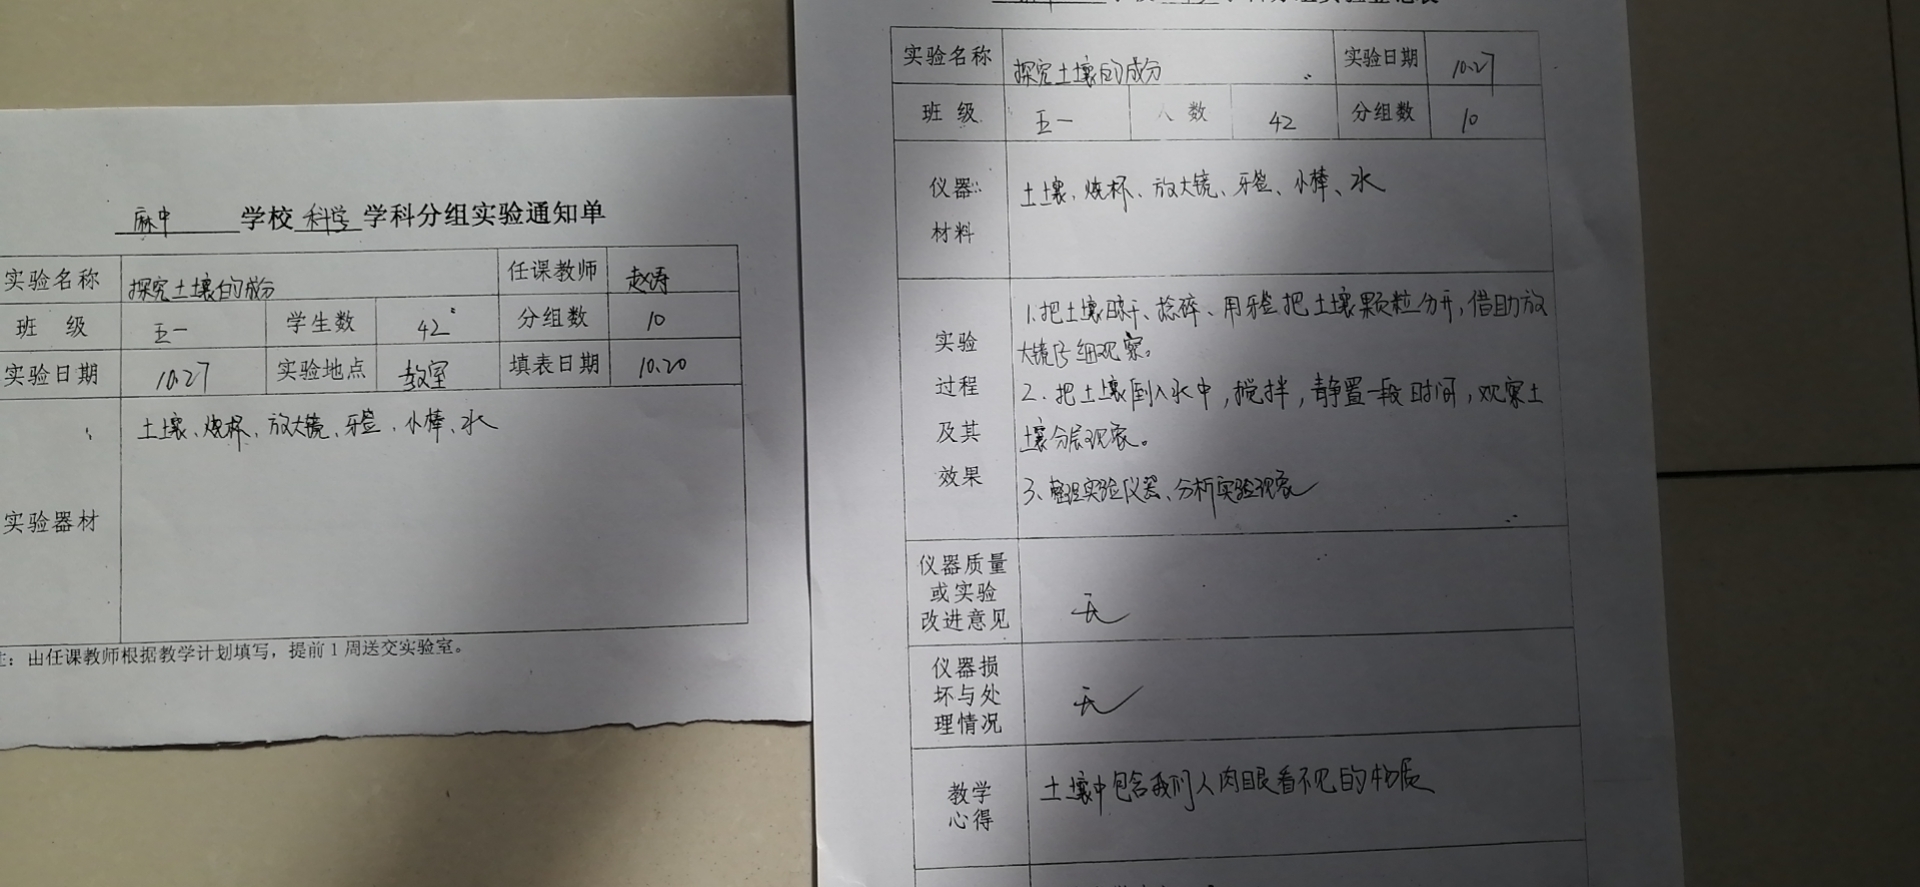 麻中 学校 科学 学科分组实验通知单
实验名称 探究土壤的成分 任课教师 赵涛
班 级 五一 学生数 42 分组数 10
实验日期 10.27 实验地点 教室 填表日期 10.20
实验器材 土壤、烧杯、放大镜、牙签、小棒、水
：由任课教师根据教学计划填写，提前1周送交实验室。
实验名称 探究土壤的成分 实验日期 10.27
班 级 五一 人 数 42 分组数 10
仪器材料 土壤、烧杯、放大镜、牙签、小棒、水
实验过程及其效果
1.把土壤晾干、捻碎、用牙签把土壤颗粒分开，借助放
大镜仔细观察。
2.把土壤倒入水中，搅拌，静置一段时间，观察土
壤分层现象。
3、整理实验仪器、分析实验现象
仪器质量或实验改进意见 无
仪器损坏与处理情况 无
教学心得 土壤中包含我们人肉眼看不见的物质